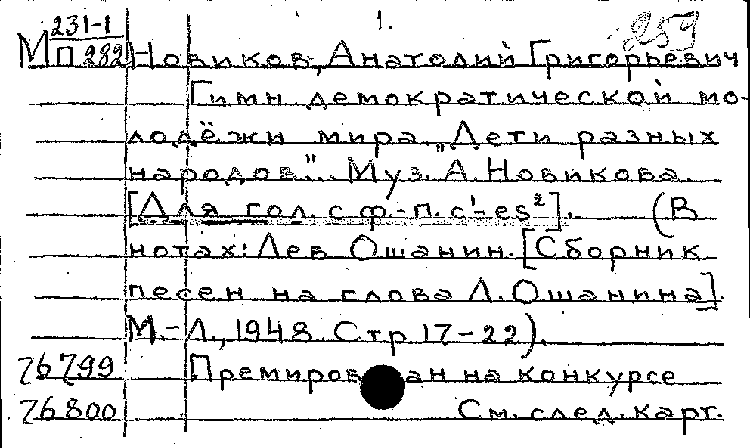 231-1 1. 259
М П 282 Новиков, Анатолий Григорьевич
Гимн демократической мо-
лодёжи мира „Дети разных
народов". Муз. А. Новикова.
[Для гол. с ф.-п. c¹-es²]. (В
нотах: Лев Ошанин. [Сборник
песен на слова Л. Ошанина].
М.-Л., 1948. Стр 17-22).
76799 Премирован на конкурсе
76800 См. след. карт.